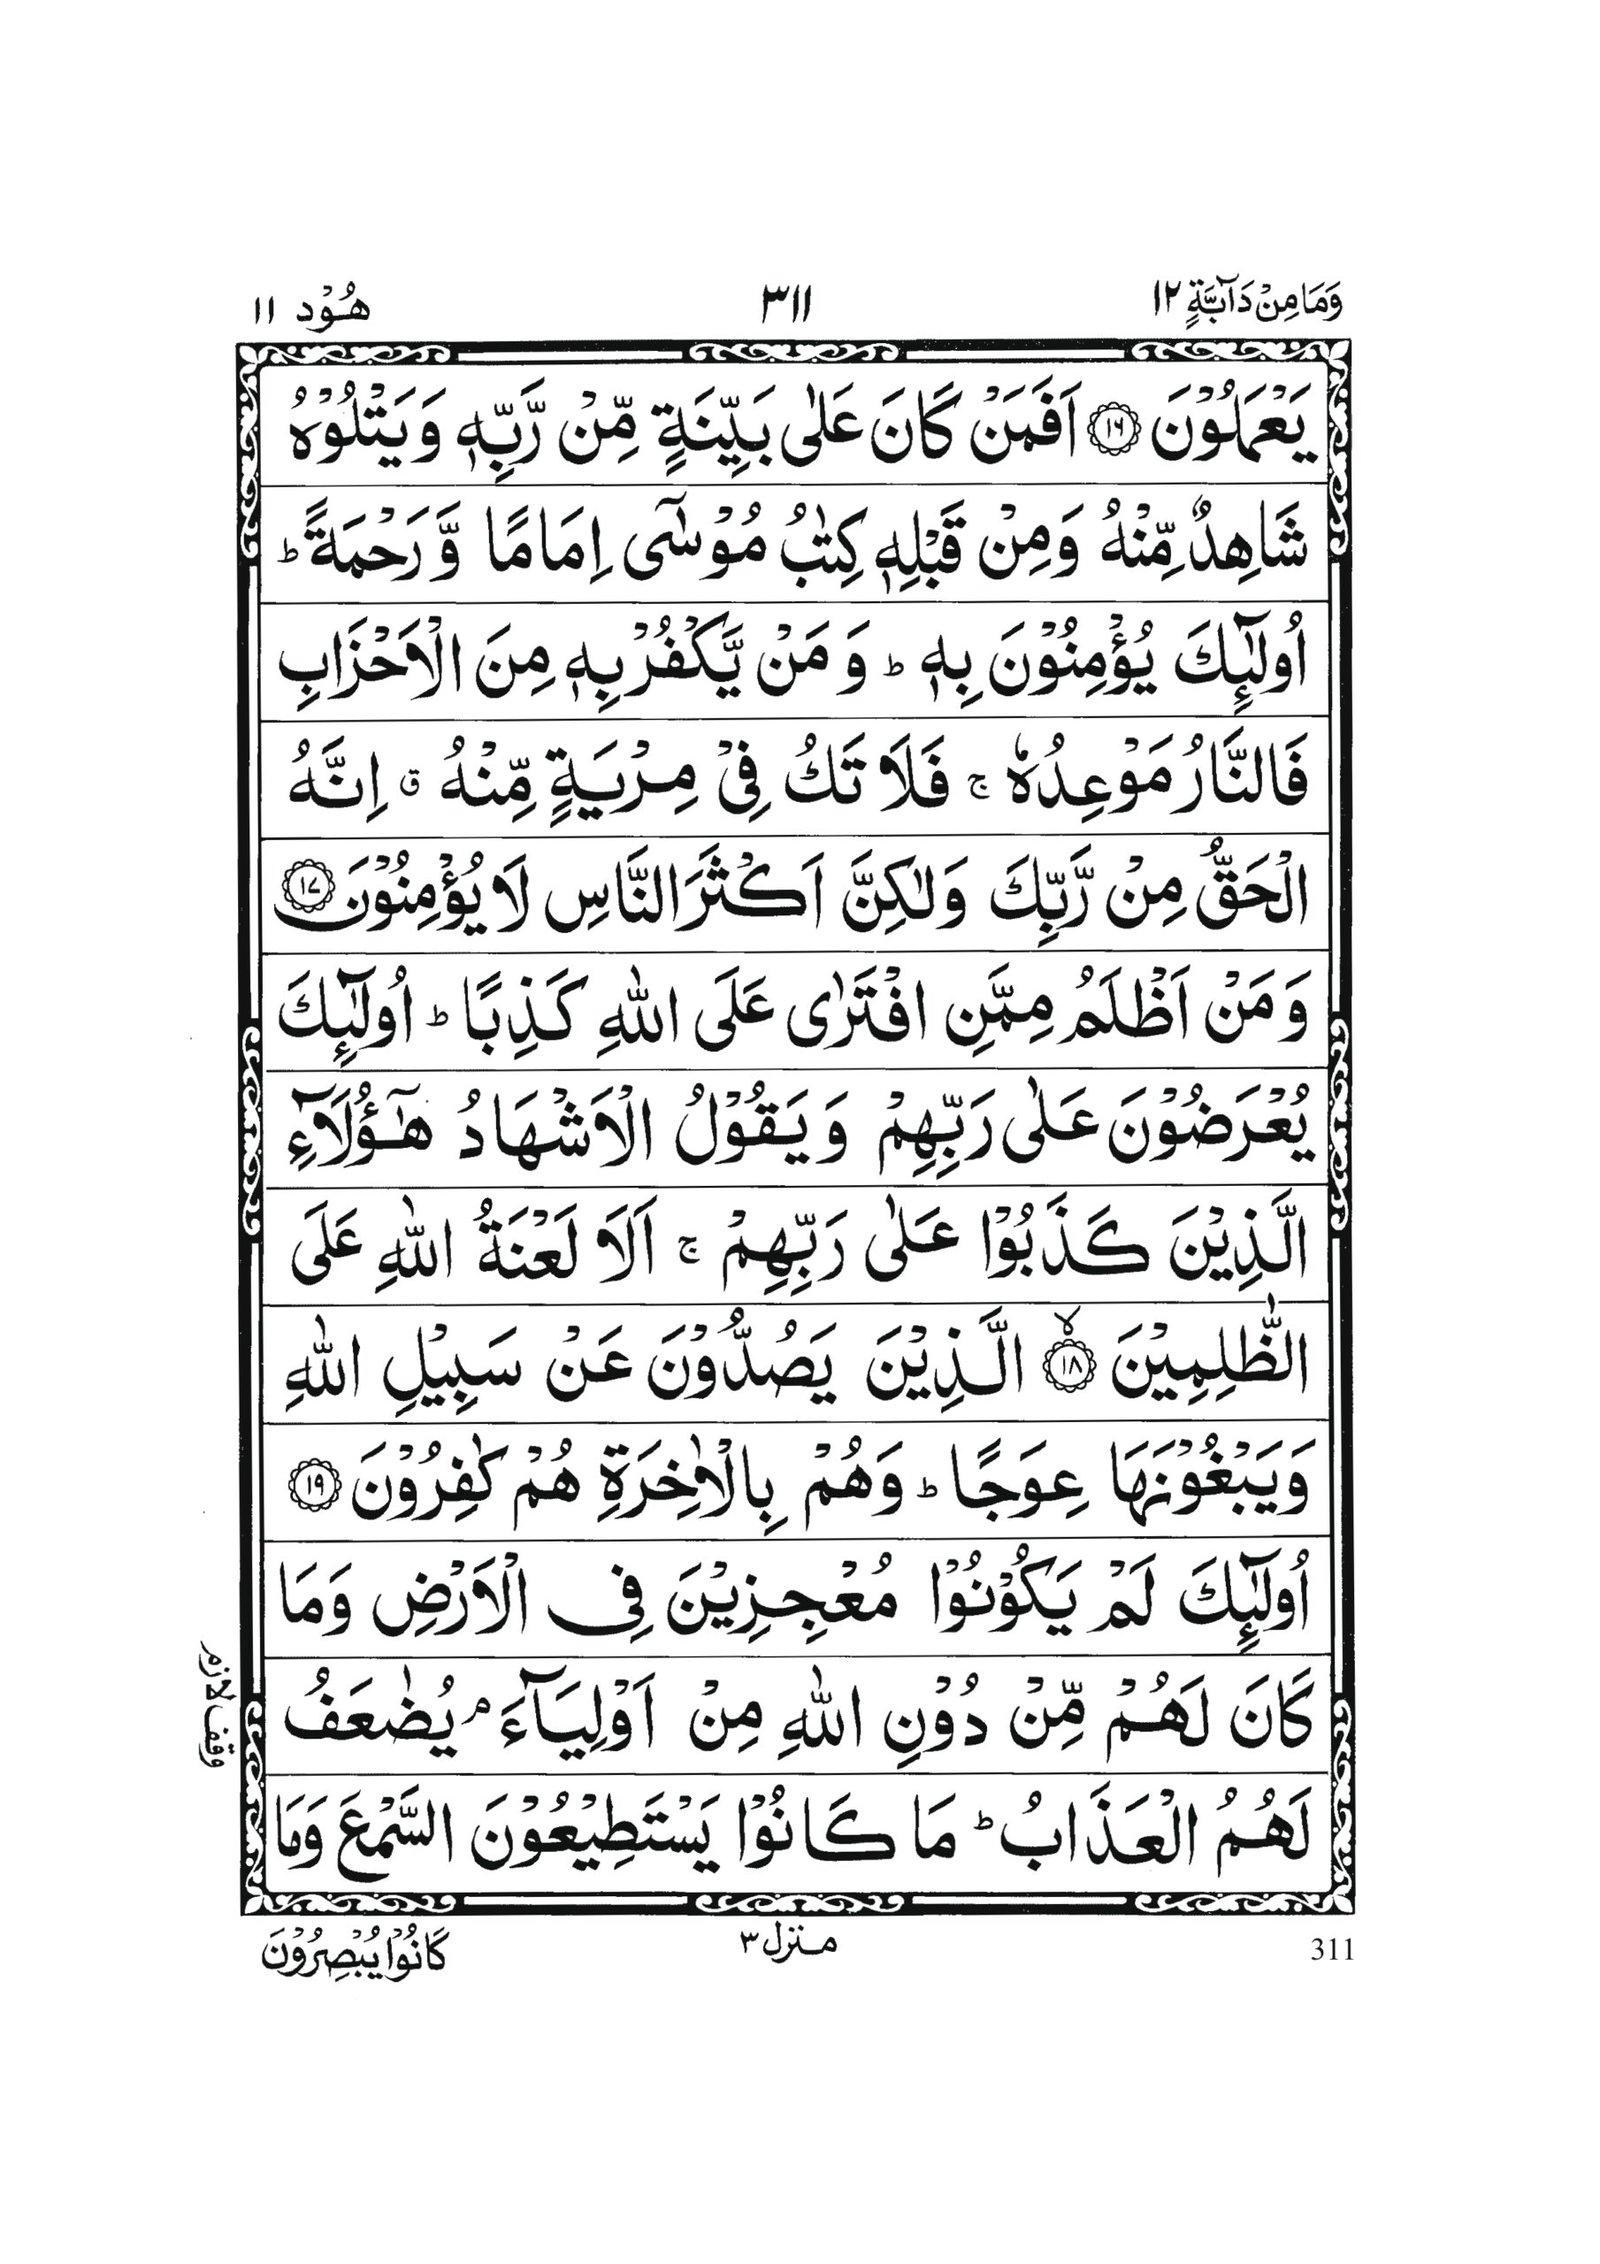 وَمَا مِنْ دَآبَّةٍ ١٢
٣١١
هُوْد ١١
يَعْمَلُوْنَ ﴿١٦﴾ اَفَمَنْ كَانَ عَلٰى بَيِّنَةٍ مِّنْ رَّبِّهٖ وَيَتْلُوْهُ
شَاهِدٌ مِّنْهُ وَمِنْ قَبْلِهٖ كِتٰبُ مُوْسٰٓى اِمَامًا وَّرَحْمَةً ؕ
اُولٰٓئِكَ يُؤْمِنُوْنَ بِهٖ ؕ وَمَنْ يَّكْفُرْ بِهٖ مِنَ الْاَحْزَابِ
فَالنَّارُ مَوْعِدُهٗ ۚ فَلَا تَكُ فِيْ مِرْيَةٍ مِّنْهُ ۗ اِنَّهُ
الْحَقُّ مِنْ رَّبِّكَ وَلٰكِنَّ اَكْثَرَ النَّاسِ لَا يُؤْمِنُوْنَ ﴿١٧﴾
وَمَنْ اَظْلَمُ مِمَّنِ افْتَرٰى عَلَى اللّٰهِ كَذِبًا ؕ اُولٰٓئِكَ
يُعْرَضُوْنَ عَلٰى رَبِّهِمْ وَيَقُوْلُ الْاَشْهَادُ هٰٓؤُلَآءِ
الَّذِيْنَ كَذَبُوْا عَلٰى رَبِّهِمْ ۚ اَلَا لَعْنَةُ اللّٰهِ عَلَى
الظّٰلِمِيْنَ ۙ﴿١٨﴾ الَّذِيْنَ يَصُدُّوْنَ عَنْ سَبِيْلِ اللّٰهِ
وَيَبْغُوْنَهَا عِوَجًا ؕ وَهُمْ بِالْاٰخِرَةِ هُمْ كٰفِرُوْنَ ﴿١٩﴾
اُولٰٓئِكَ لَمْ يَكُوْنُوْا مُعْجِزِيْنَ فِى الْاَرْضِ وَمَا
كَانَ لَهُمْ مِّنْ دُوْنِ اللّٰهِ مِنْ اَوْلِيَآءَ ۘ يُضٰعَفُ
وقف لازم
لَهُمُ الْعَذَابُ ؕ مَا كَانُوْا يَسْتَطِيْعُوْنَ السَّمْعَ وَمَا
311
منزل ٣
كَانُوْا يُبْصِرُوْنَ